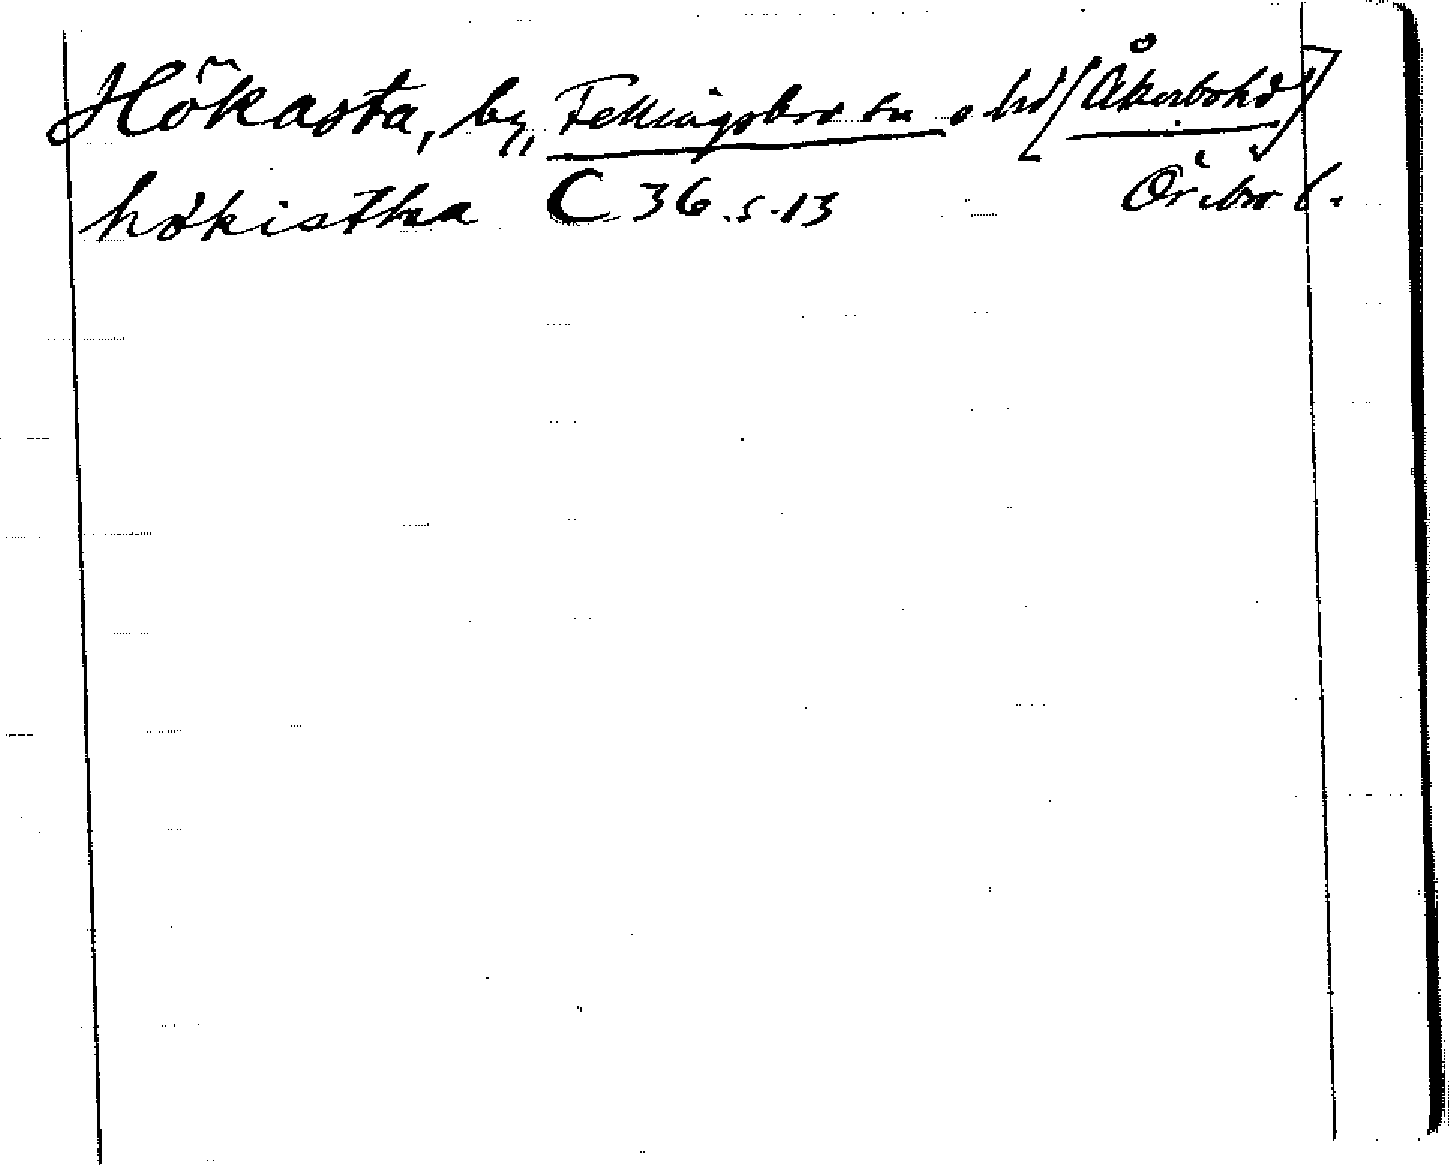 Hökasta, by, Fellingsbro sn o hd (Åkerbohd)
hökistha C 36 s. 13 Örebro l.